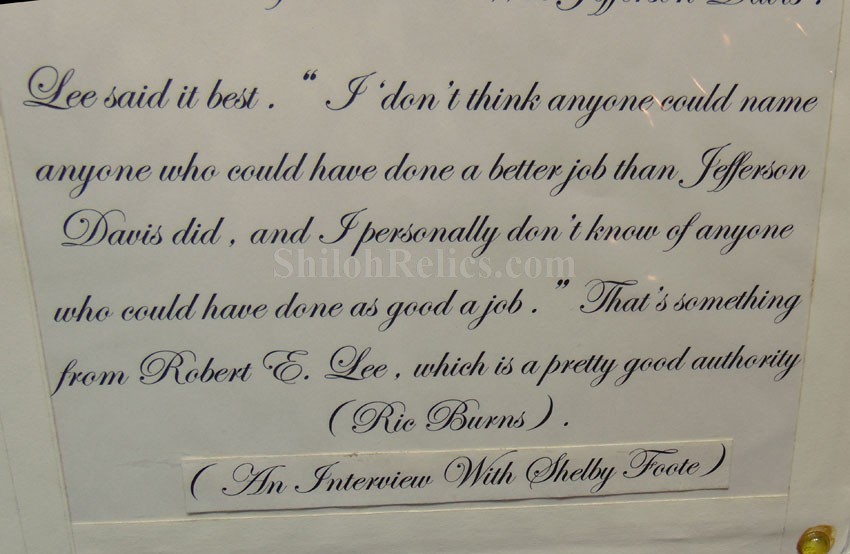 Jefferson Davis.
Lee said it best. “ I ‘don’t think anyone could name
anyone who could have done a better job than Jefferson
Davis did, and I personally don’t know of anyone
ShilohRelics.com
who could have done as good a job.” That’s something
from Robert E. Lee, which is a pretty good authority
(Ric Burns).
( An Interview With Shelby Foote)